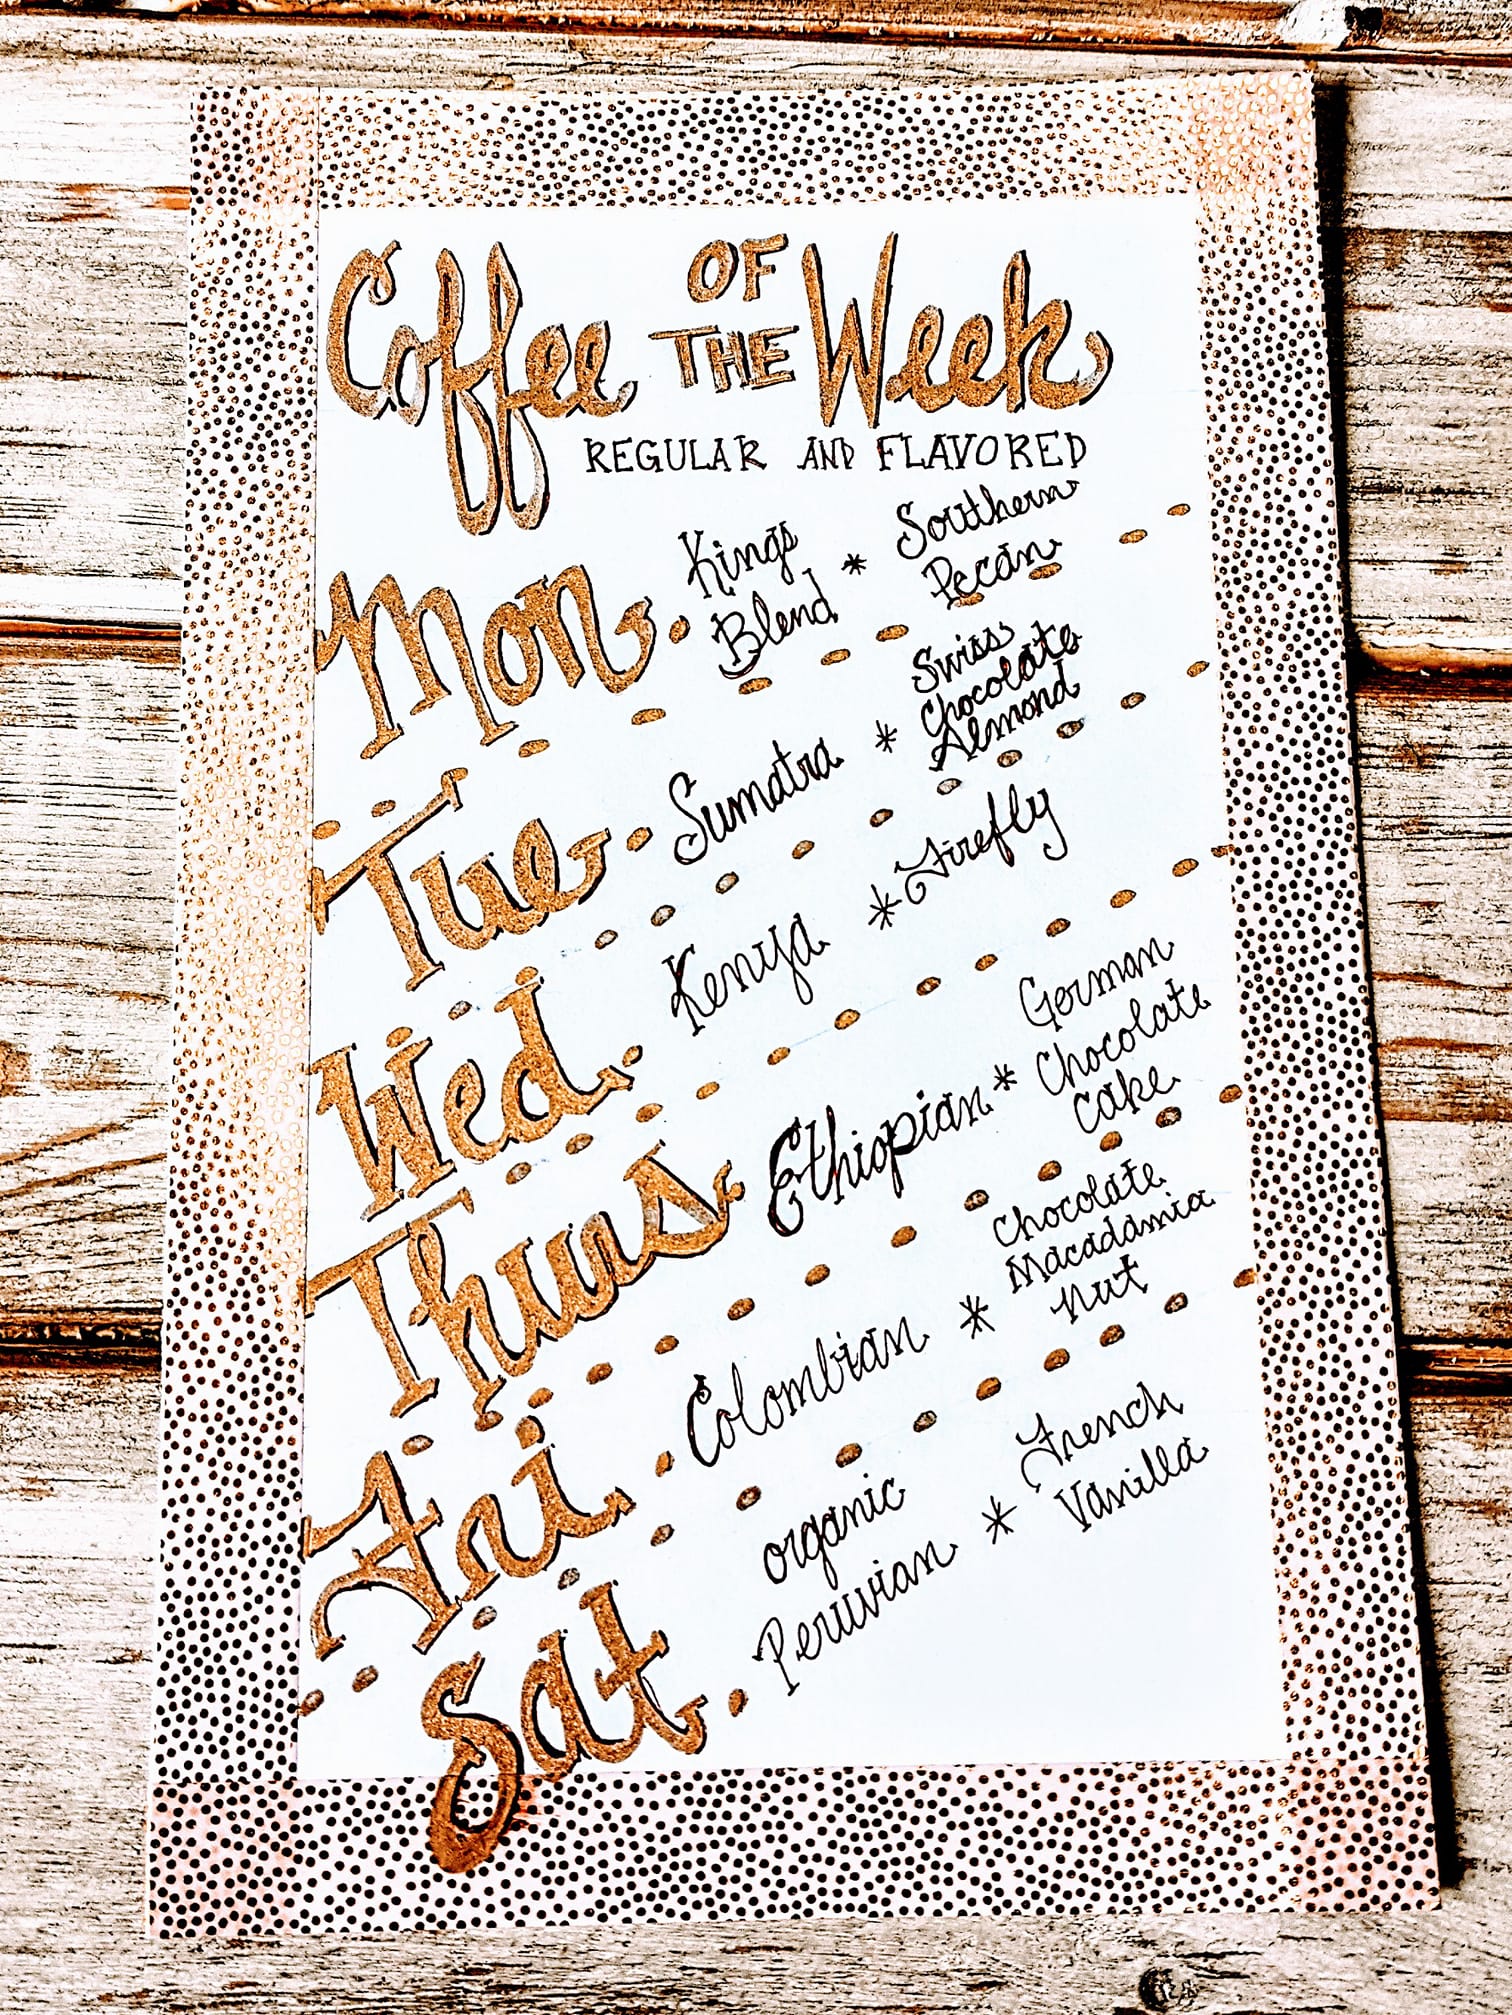 Coffee OF THE Week
REGULAR AND FLAVORED
Mon. Kings Blend * Southern Pecan
Tue. Sumatra * Swiss Chocolate Almond
Wed. Kenya * Firefly
Thurs. Ethiopian * German Chocolate Cake
Fri. Colombian * Chocolate Macadamia Nut
Sat. organic Peruvian * French Vanilla